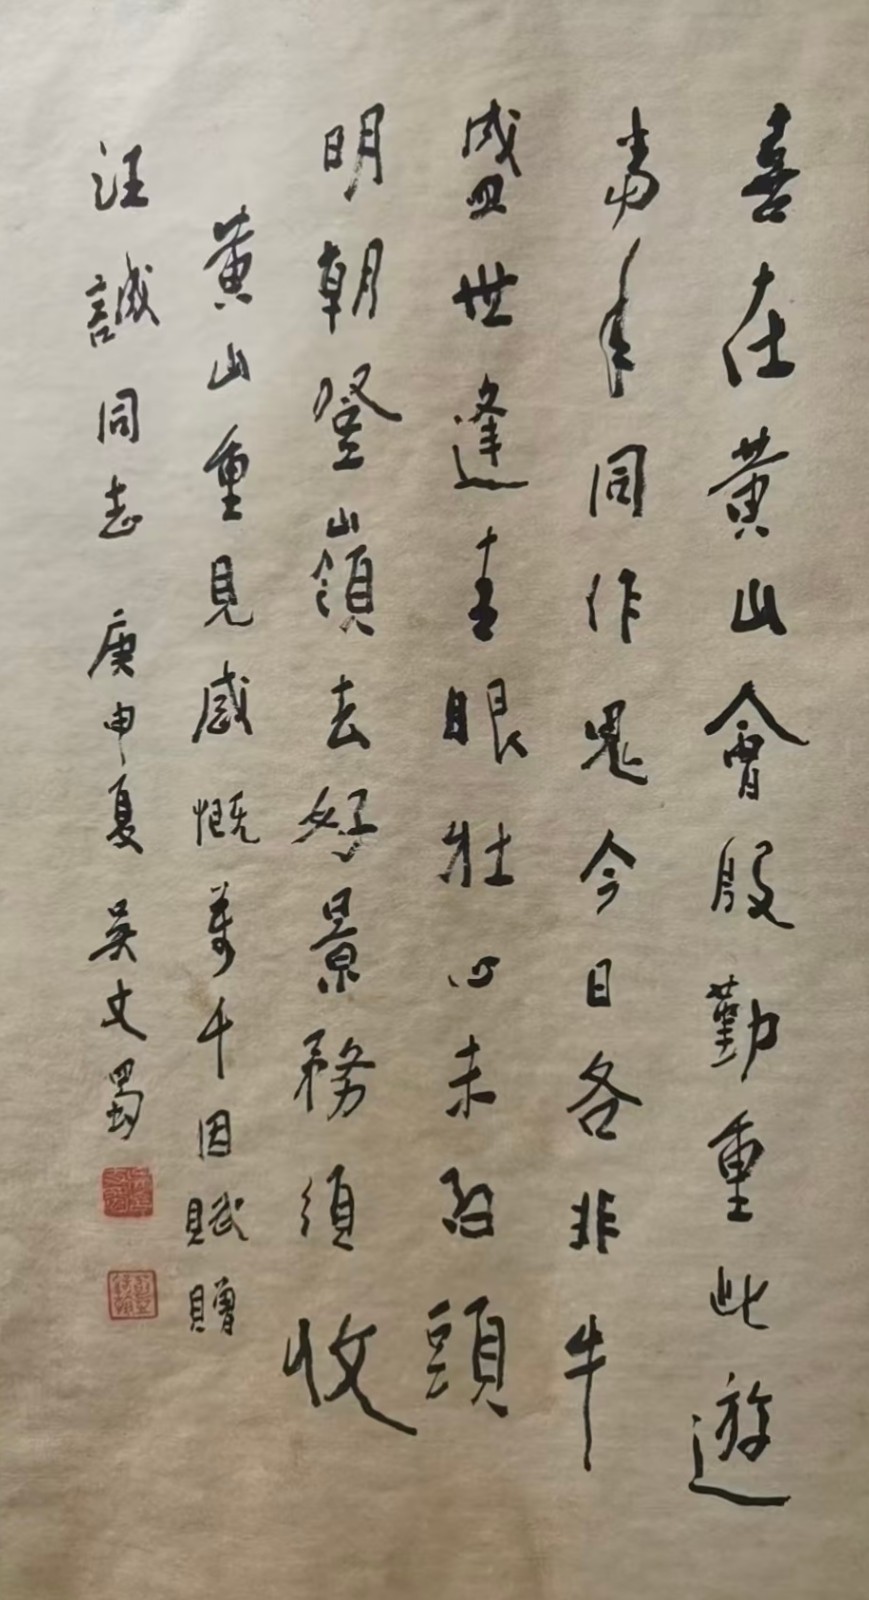 喜在黄山會殷勤重此遊
當年同作鬼今日各非牛
盛世逢青眼壯心未頭
明朝登嶺去好景務須收
黄山重見感慨萬千因賦贈
汪誠同志 庚申夏 吳文蜀